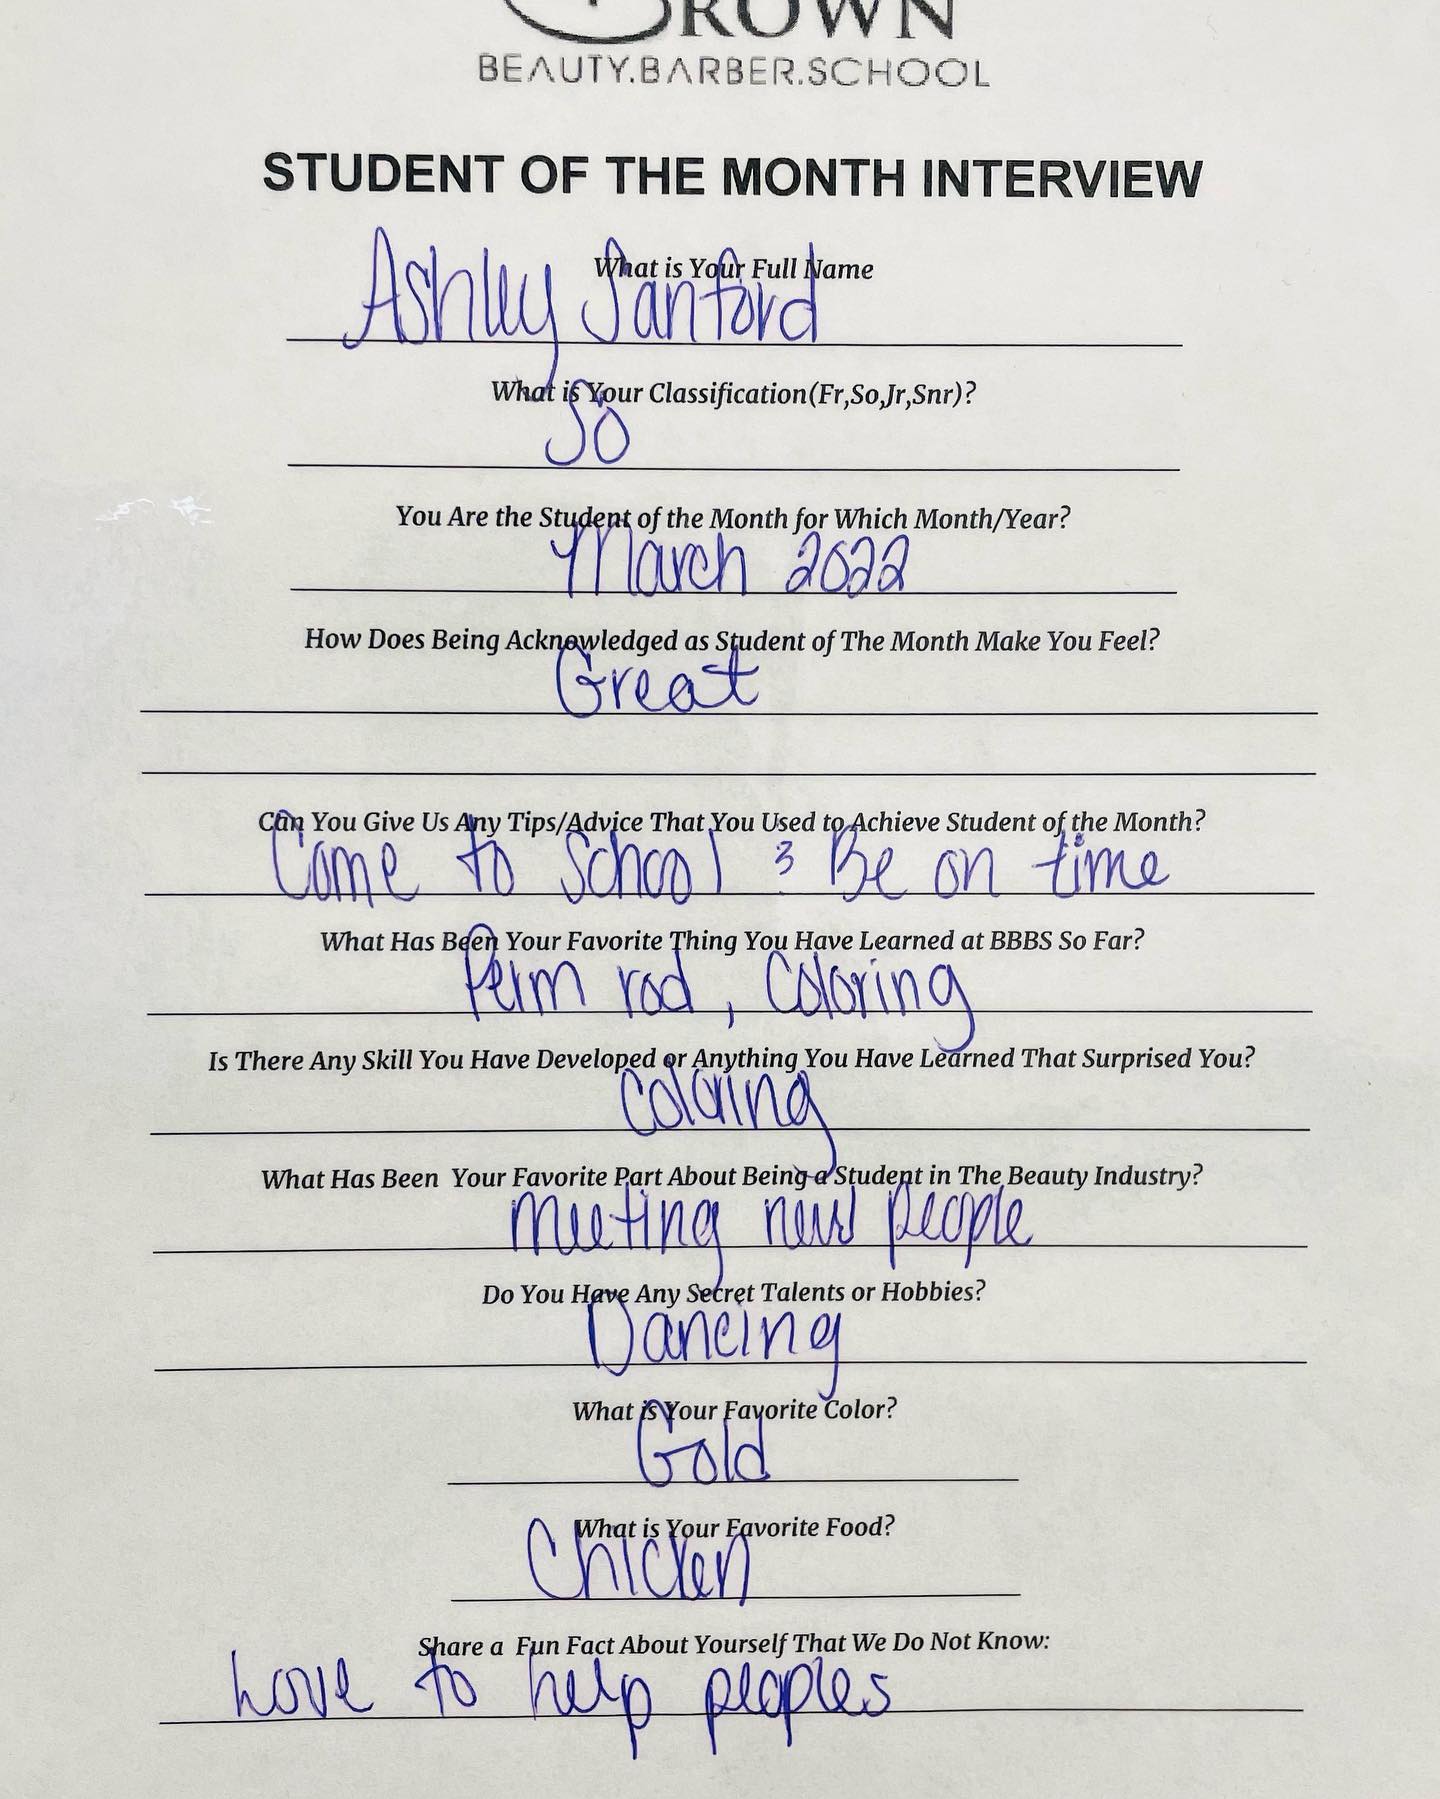 BROWN
BEAUTY.BARBER.SCHOOL
STUDENT OF THE MONTH INTERVIEW
What is Your Full Name
Ashley Sanford
What is Your Classification(Fr,So,Jr,Snr)?
So
You Are the Student of the Month for Which Month/Year?
March 2022
How Does Being Acknowledged as Student of The Month Make You Feel?
Great
Can You Give Us Any Tips/Advice That You Used to Achieve Student of the Month?
Come to School & Be on time
What Has Been Your Favorite Thing You Have Learned at BBBS So Far?
Perm rod, Coloring
Is There Any Skill You Have Developed or Anything You Have Learned That Surprised You?
Coloring
What Has Been Your Favorite Part About Being a Student in The Beauty Industry?
meeting new people
Do You Have Any Secret Talents or Hobbies?
Dancing
What is Your Favorite Color?
Gold
What is Your Favorite Food?
Chicken
Share a Fun Fact About Yourself That We Do Not Know:
Love to help peoples